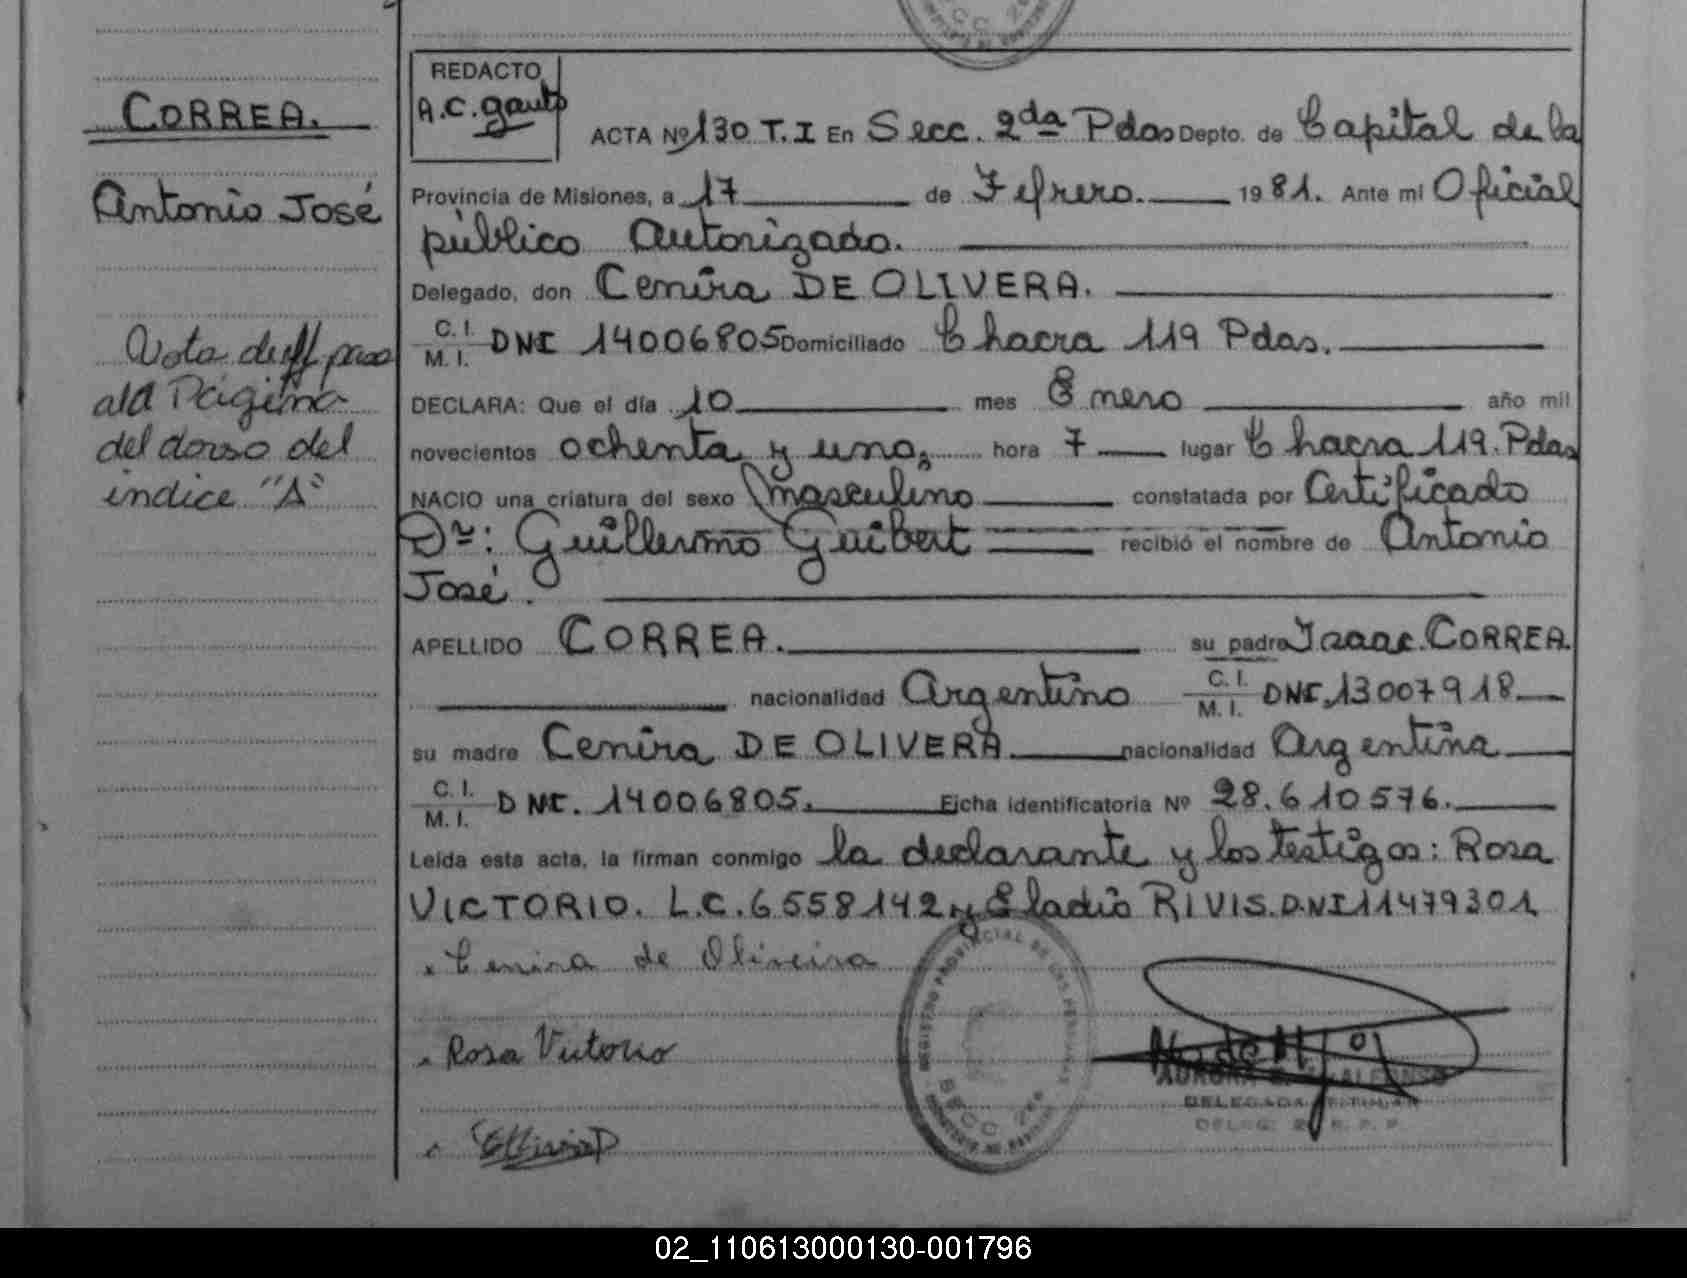 CORREA.
Antonio José
Nota de ff pasa
a la Página
del dorso del
indice "A"
REDACTO
A.C. gauto
ACTA Nº 130 T.I En Secc. 2da Pdas Depto. de Capital de la
Provincia de Misiones, a 17 de Febrero. 1981. Ante mi Oficial
público Autorizado.
Delegado, don Cenira DE OLIVERA.
C. I.
M. I. DNI 14006805 Domiciliado Chacra 119 Pdas.
DECLARA: Que el día 10 mes Enero año mil
novecientos ochenta y uno, hora 7 lugar Chacra 119. Pdas
NACIO una criatura del sexo masculino constatada por Certificado
Dr: Guillermo Guibert recibió el nombre de Antonio
José.
APELLIDO CORREA. su padre Isaac CORREA.
nacionalidad Argentino C. I.
M. I. DNI. 13007918
su madre Cenira DE OLIVERA nacionalidad Argentina
C. I.
M. I. DNI. 14006805. Ficha identificatoria Nº 28.610576.
Leída esta acta, la firman conmigo la declarante y los testigos: Rosa
VICTORIO. L.C. 6558142 y Eladio RIVIS. DNI 11479301
Cenira de Oliveira
Rosa Victorio
REGISTRO PROVINCIAL DE LAS PERSONAS
SECC 2da
DELEGADA TITULAR
02_110613000130-001796